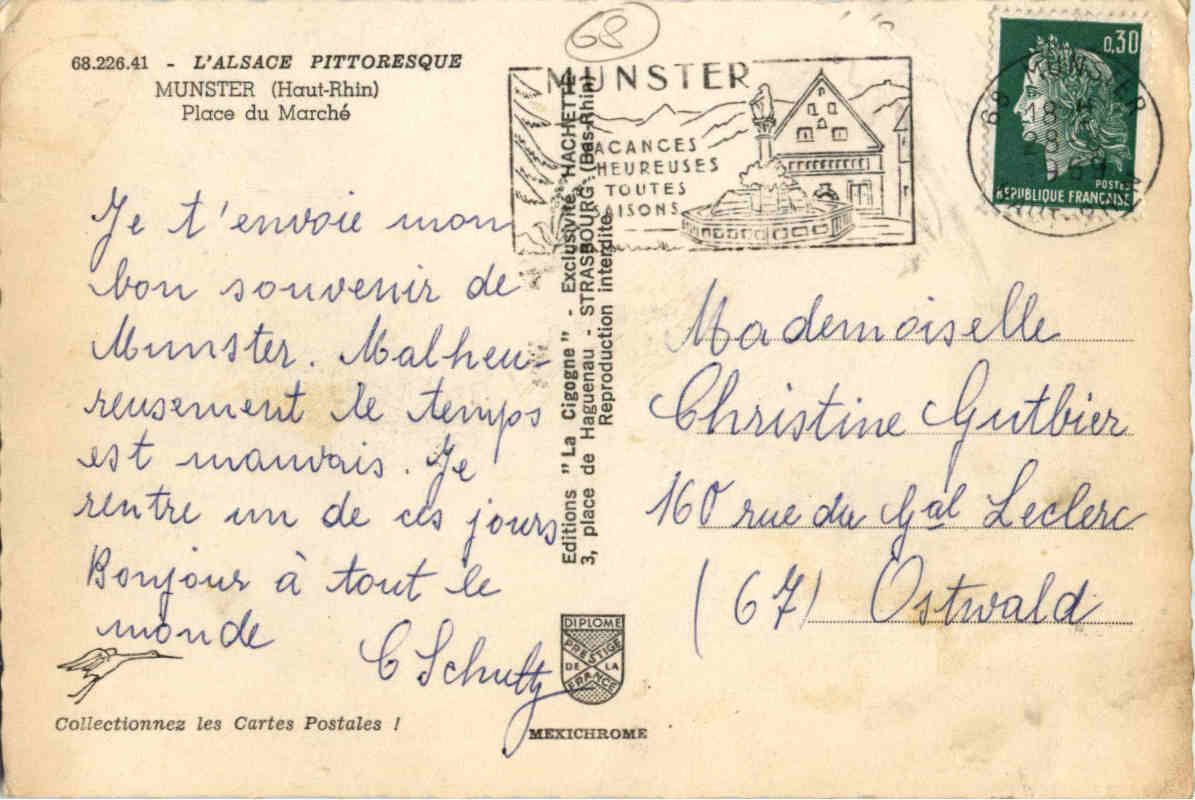 68
68.226.41 - L'ALSACE PITTORESQUE
MUNSTER (Haut-Rhin)
Place du Marché
Je t'envoie mon
bon souvenir de
Munster. Malheu-
reusement le temps
est mauvais. Je
rentre un de ces jours
Bonjour à tout le
monde
C Schultz
Collectionnez les Cartes Postales !
Editions "La Cigogne" - Exclusivité HACHETTE
3, place de Haguenau - STRASBOURG (Bas-Rhin)
Reproduction interdite
DIPLOME
PRESTIGE
DE LA
FRANCE
MEXICHROME
MUNSTER
VACANCES
HEUREUSES
TOUTES
SAISONS
0,30
POSTES
REPUBLIQUE FRANÇAISE
68 MUNSTER
18 H
28
1969
Mademoiselle
Christine Gutbier
160 rue du Gal Leclerc
(67) Ostwald